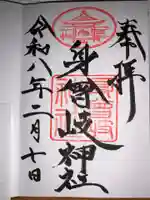 奉拝
身曾岐神社
令和八年二月十日